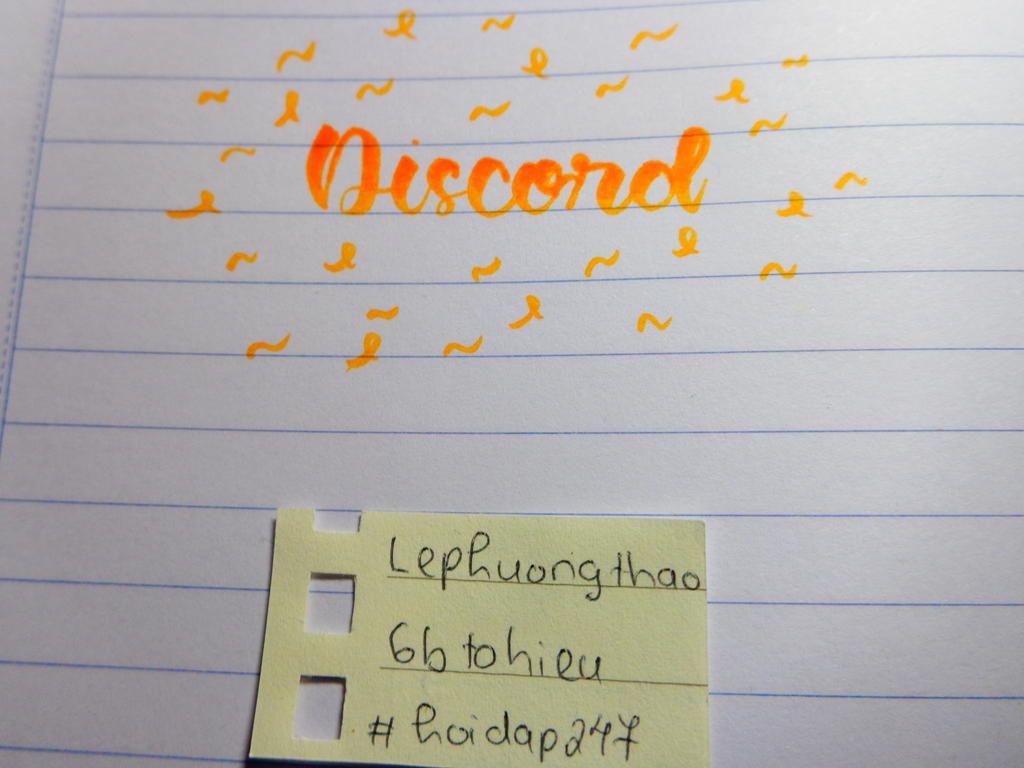 Discord
Lephuongthao
6b tohieu
#hoidap247